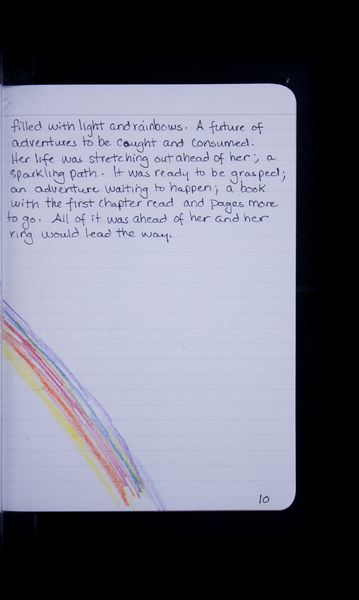 filled with light and rainbows. A future of
adventures to be caught and consumed.
Her life was stretching out ahead of her; a
sparkling path. It was ready to be grasped;
an adventure waiting to happen; a book
with the first chapter read and pages more
to go. All of it was ahead of her and her
ring would lead the way.
10